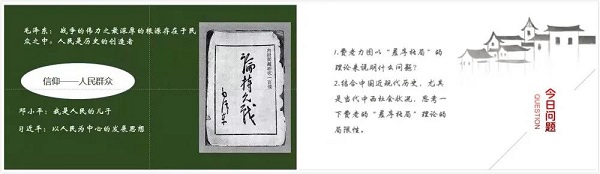 毛泽东：战争的伟力之最深厚的根源存在于民
众之中。人民是历史的创造者
信仰——人民群众
邓小平：我是人民的儿子
习近平：以人民为中心的发展思想
论持久战
毛泽东
1.费老力图以“差序格局”的
理论来说明什么问题？
2.结合中国近现代历史，尤其
是当代中西社会状况，思考一
下费老的“差序格局”理论的
局限性。
今日问题
QUESTION